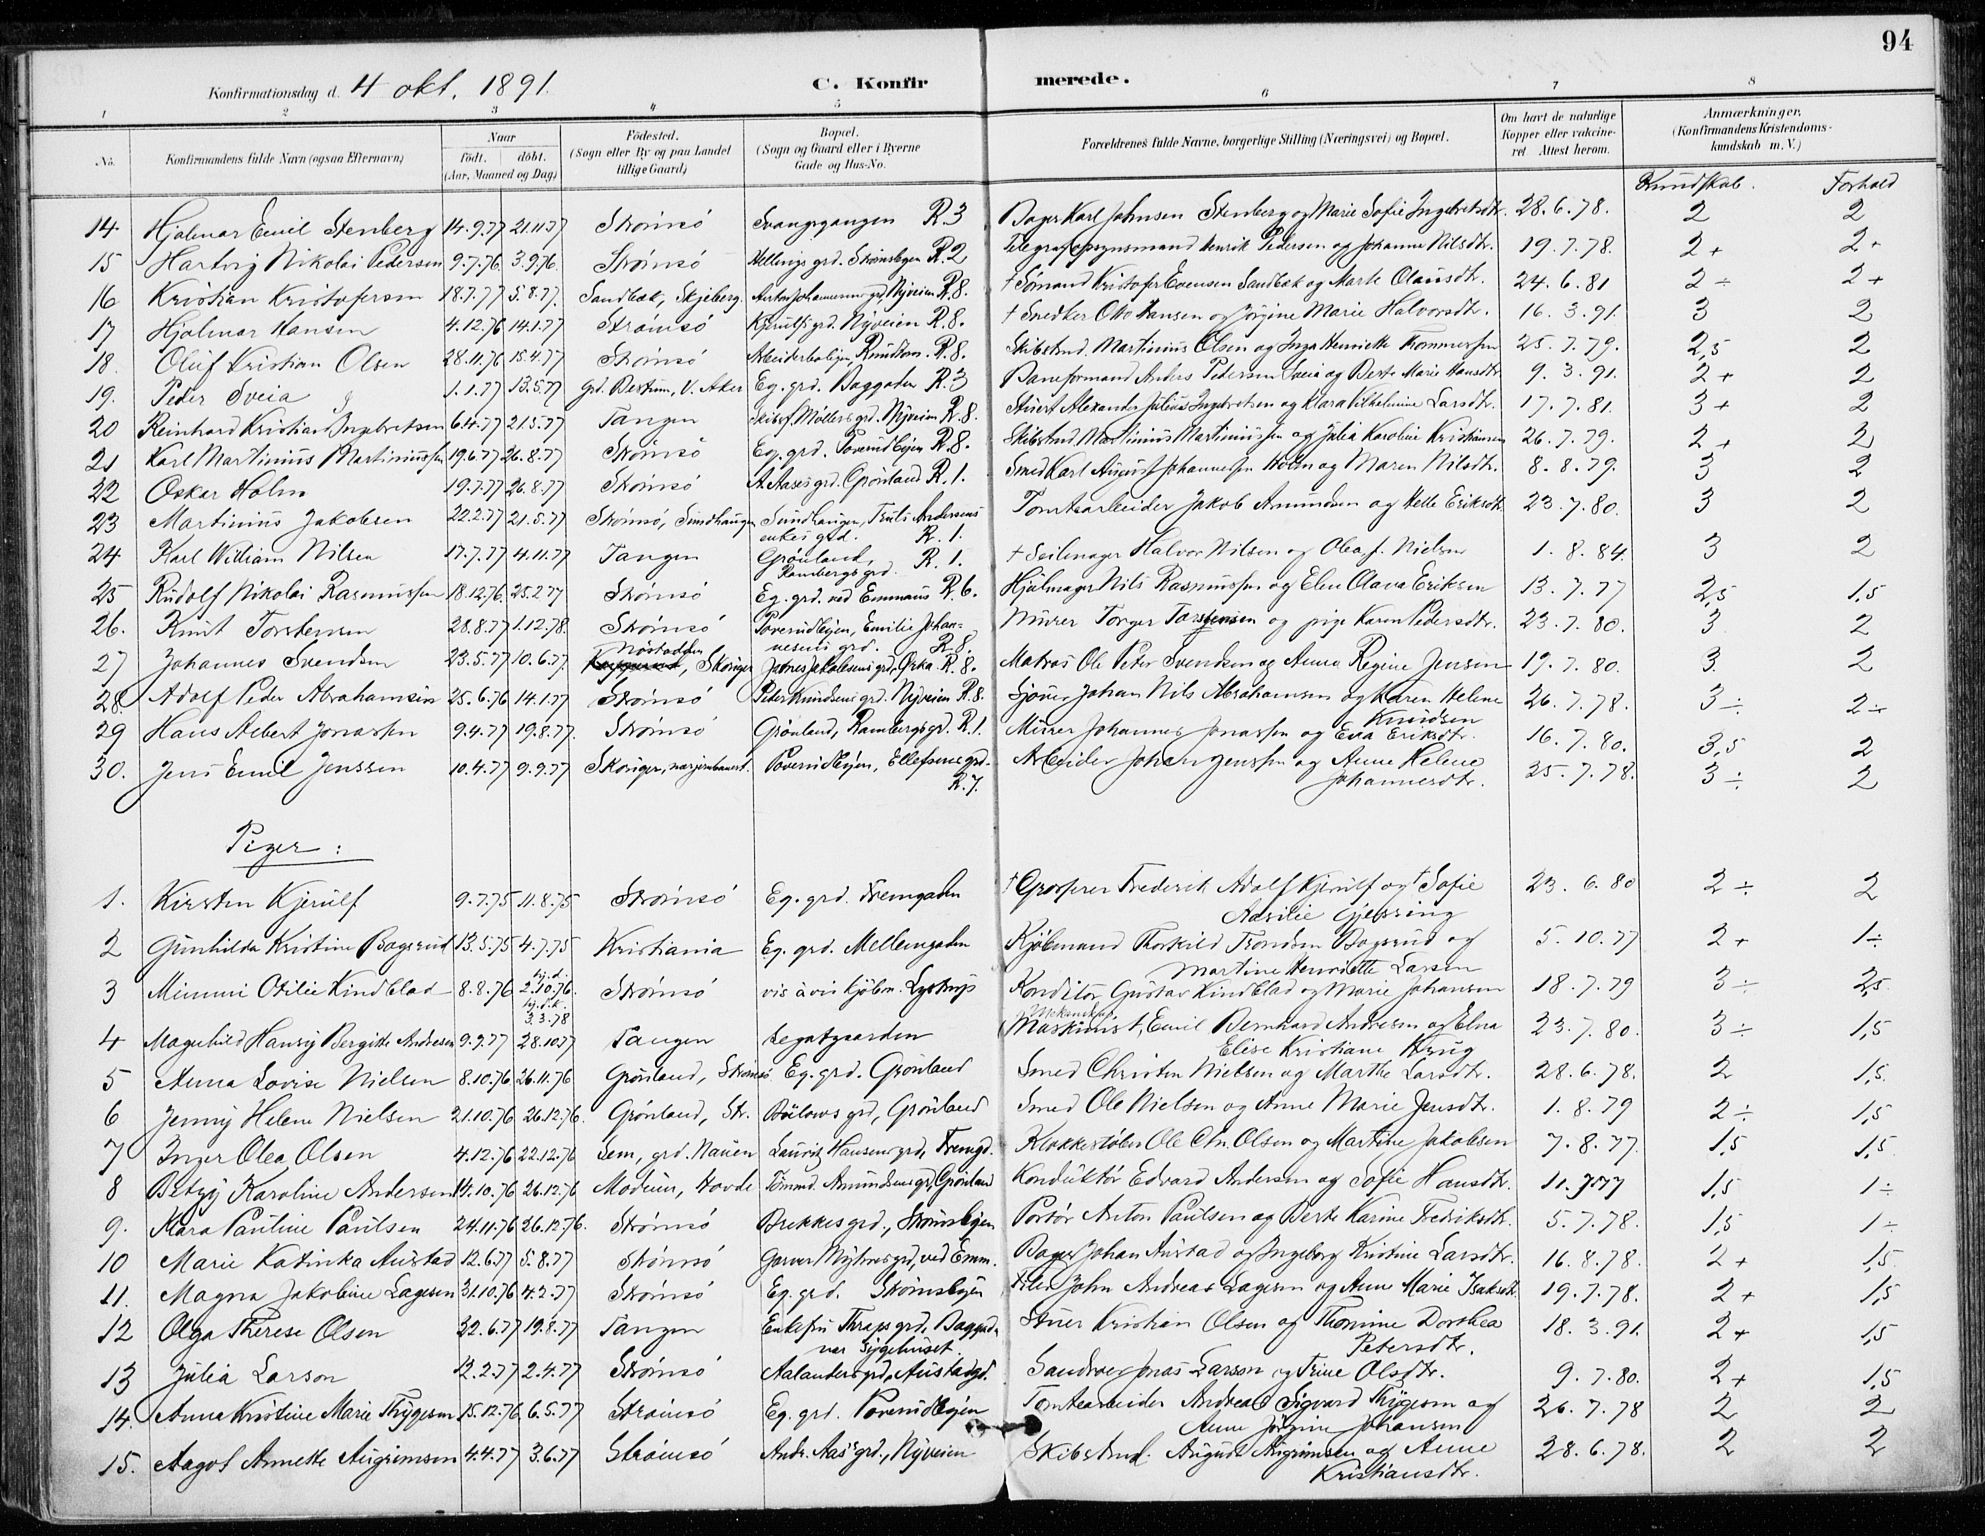 94
Konfirmationsdag d. 4 okt. 1891. C. Konfirmerede.
1 2 3 4 5 6 7 8
No. Konfirmandens fulde Navn (ogsaa Efternavn) Naar födt. döbt. (Aar, Maaned og Dag) Födested. (Sogn eller By og paa Landet tillige Gaard) Bopæl. (Sogn og Gaard eller i Byerne Gade og Hus-No. Forældrenes fulde Navne, borgerlige Stilling (Næringsvei) og Bopæl. Om havt de naturlige Kopper eller vakcineret Attest herom. Anmærkninger. (Konfirmandens Kristendomskundskab m. V.)
Kundskab. Forhold
14 Hjalmar Emil Stenberg 14.9.77 21.11.77 Strömsö Svangrgangen R.3 Bager Karl Johnsen Stenberg og Marie Sofie Ingebretsdtr. 28.6.78. 2 2
15 Hartvig Nikolai Pedersen 9.7.76 3.9.76. Strömsö Hellings grd. Strömsbyen R.2 Telegrafopsynsmand Henrik Pedersen og Johanne Nilsdtr. 19.7.78. 2+ 2+
16 Kristian Kristofersen 18.7.77 5.8.77. Sandbæk, Skjeberg. Nyveien R.8. † Sömand Kristofer Evensen Sandbæk og Marte Olausdtr. 24.6.81 2÷ 2+
17 Hjalmar Hansen 4.12.76 14.1.77 Strömsö Kjerulfs grd. Nyveien R.8. † Snedker Otto Hansen og Jörgine Marie Halvorsdtr. 16.3.91. 3 2
18. Oluf Kristian Olsen 28.11.76 15.4.77 Strömsö Arbeiderboligen, Rundtom. R.8. Skibstmd. Martinius Olsen og Inga Henriette Trommersen 25.7.79. 2,5 2
19. Peder Sveia 1.1.77 13.5.77 grd. Bestum, V. Aker Eg. grd. Baggaden R.3 Baneformand Anders Pedersen Sveia og Berte Marie Hansdtr. 9.3.91. 2+ 2
20 Reinhard Kristian Ingebretsen 6.4.77 21.5.77 Tangen Skibsf. Möllers grd. Nyveien R.8. Stuert Alexander Julius Ingebretsen og Klara Vilhelmine Larsdtr. 17.7.81. 3+ 2
21 Karl Martinius Martiniussen 19.6.77 26.8.77 Strömsö Eg. grd. Poverudbyen R.8. Skibstmd. Martinius Martiniussen og Julia Karoline Kristiansen 26.7.79. 2+ 2
22 Oskar Holm 19.7.77 26.8.77 Strömsö A. Aases grd. Grönland R.1. Smed Karl August Johannessen Holm og Maren Nilsdtr. 8.8.79. 3 2
23 Martinius Jakobsen 22.2.77 21.5.77 Strömsö, Sundhaugen Sundhaugen, Truls Andersens enkes grd. R.1. Tomtearbeider Jakob Amundsen og Helle Eriksdtr. 23.7.80. 3 2
24 Karl William Nilsen 17.7.77 4.11.77 Tangen Grönland, Rambergs grd. R.1. † Seilmager Halvor Nilsen og Olea f. Nielsen 1.8.84. 3 2
25 Rudolf Nikolai Rasmussen 18.12.76 25.2.77 Strömsö Eg. grd. ved Emmaus R.6. Hjulmager Nils Rasmussen og Elen Olava Eriksen 13.7.77 2,5 1,5
26. Knut Torstensen 28.8.77 1.12.78. Strömsö Poverudbyen, Emilie Johannesens grd. R.8. Murer Torger Torstensen og pige Karen Pedersdtr. 23.7.80. 3 2
27 Johannes Svendsen 23.5.77 10.6.77. Nöstodden, Skoger Jakobsens grd, Öxka. R.8. Matros Ole Peter Svendsen og Anna Regine Jensen 19.7.80. 3 2
28. Adolf Peder Abrahamsen 25.6.76 14.1.77 Strömsö Peder Knudsens grd, Nyveien R.8. Sjöuer Johan Nils Abrahamsen og Karen Helene Knudsen 26.7.78. 3÷ 2÷
29 Hans Albert Jonassen 9.4.77 19.8.77. Strömsö Grönland, Rambergs grd. R.1. Murer Johannes Jonassen og Eva Eriksdtr. 16.7.80. 3,5 2
30. Jens Emil Jenssen 10.4.77 9.9.77 Skoger, nær jernbanest. Poverudbyen, Ellefsens grd. R.7. Arbeider Johan Jenssen og Anne Helene Johannesdtr. 25.7.78. 3÷ 2
Piger:
1. Kirsten Kjerulf 9.7.75 11.8.75 Strömsö Eg. grd. Fremgaden † Grosserer Frederik Adolf Kjerulf og † Sofie Aasilie Gjessing 23.6.80 2÷ 2
2 Gunhilda Kristine Bagerud 13.5.75 4.7.75 Kristiania Eg. grd. Mellemgaden Kjöbmand Thorkild Trondsen Bagerud og Martine Henriette Larsen 5.10.77 2+ 1÷
3 Mimmi Otilie Kindblad 8.8.76 hj.d. 2.10.76. hj.d.k. 3.3.78 Strömsö vis à vis kjöbm. Lystrup Konditor Gustav Kindblad og Marie Johansen 18.7.79 3÷ 2,5
4 Magnhild Hansy Bergitte Andresen 9.9.77 28.10.77 Tangen Legatgaarden Maskinist, Emil Bernhard Andresen og Elna Elise Kristiane Krug 23.7.80. 3÷ 1,5
5 Anna Lovise Nielsen 8.10.76 26.11.76 Grönland, Strömsö Eg. grd. Grönland Smed Christen Nielsen og Marthe Larsdtr. 28.6.78. 2 1,5
6 Jenny Helene Nielsen 21.10.76 26.12.76. Grönland, Str. Bülows grd, Grönland Smed Ole Nielsen og Anne Marie Jensdtr. 1.8.79 2÷ 1,5
7 Inger Olea Olsen 4.12.76 22.12.76 Sem, grd. Nauen Lauritz Hansens grd, Fremgd. Klokkestöber Ole Chr. Olsen og Martine Jakobsen 7.8.77. 1,5 1,5
8 Betzy Karoline Andersen 14.10.76 26.12.76 Modum, Hovde Tömmd. Amundsens grd, Grönland Konduktör Edvard Andersen og Sofie Hansdtr. 11.7.77 1,5 1÷
9. Klara Pauline Paulsen 24.11.76 26.12.76. Strömsö Brekkes grd., Strömsbyen Portör Anton Paulsen og Berte Karine Fredriksdtr. 5.7.78. 1,5 1÷
10 Marie Katinka Austad 12.6.77 5.8.77 Strömsö Garver Myhres grd, ved Emm. Bager Johan Austad og Ingeborg Kristine Larsdtr. 16.8.78. 2+ 1,5
11. Magna Jakobine Lagesen 31.10.76 4.2.77 Strömsö Eg. grd. Strömsbyen John Andreas Lagesen og Anne Marie Isaksdtr. 19.7.78. 2+ 1,5
12 Olga Therese Olsen 22.6.77 19.8.77 Tangen Enkefru Thraps grd. Baggad. nær Sygehuset. Stuer Kristian Olsen og Thomine Dorthea Petersdtr. 18.3.91. 2+ 1,5
13 Julia Larson 12.2.77 2.4.77 Strömsö Aalanders grd, Austadgd. Jonas Larsson og Trine Olsdtr. 9.7.80. 2+ 1,5
14. Anna Kristine Marie Thygesen 15.12.76 6.5.77 Strömsö Eg. grd. Poverudbyen Tomtearbeider Andreas Sigvard Thygesen og Anne Jörgine Johansen 26.7.78 2 2
15. Aagot Annette Augrimsen 4.4.77 3.6.77 Strömsö Andr. Aas' grd., Nyveien Skibstmd. August Augrimsen og Anne Kristiansdtr. 28.6.78. 2 2